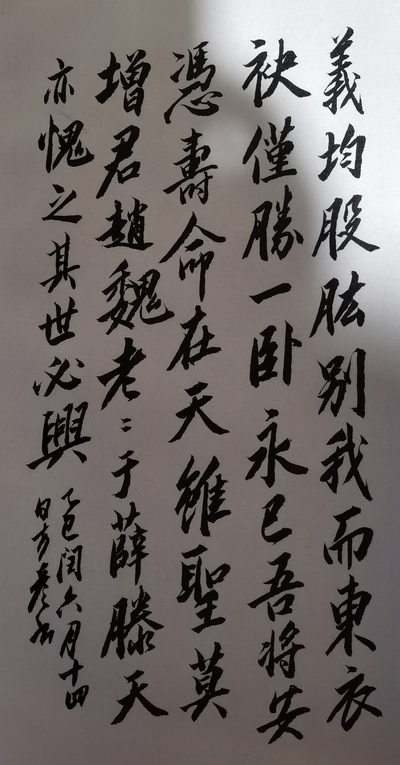 義均股肱別我而東衣
袂僅勝一卧永已吾將安
憑壽命在天雖聖莫
增君趙魏老〻于薛滕天
亦愧之其世必興
乙巳閏六月十四
日方彥書